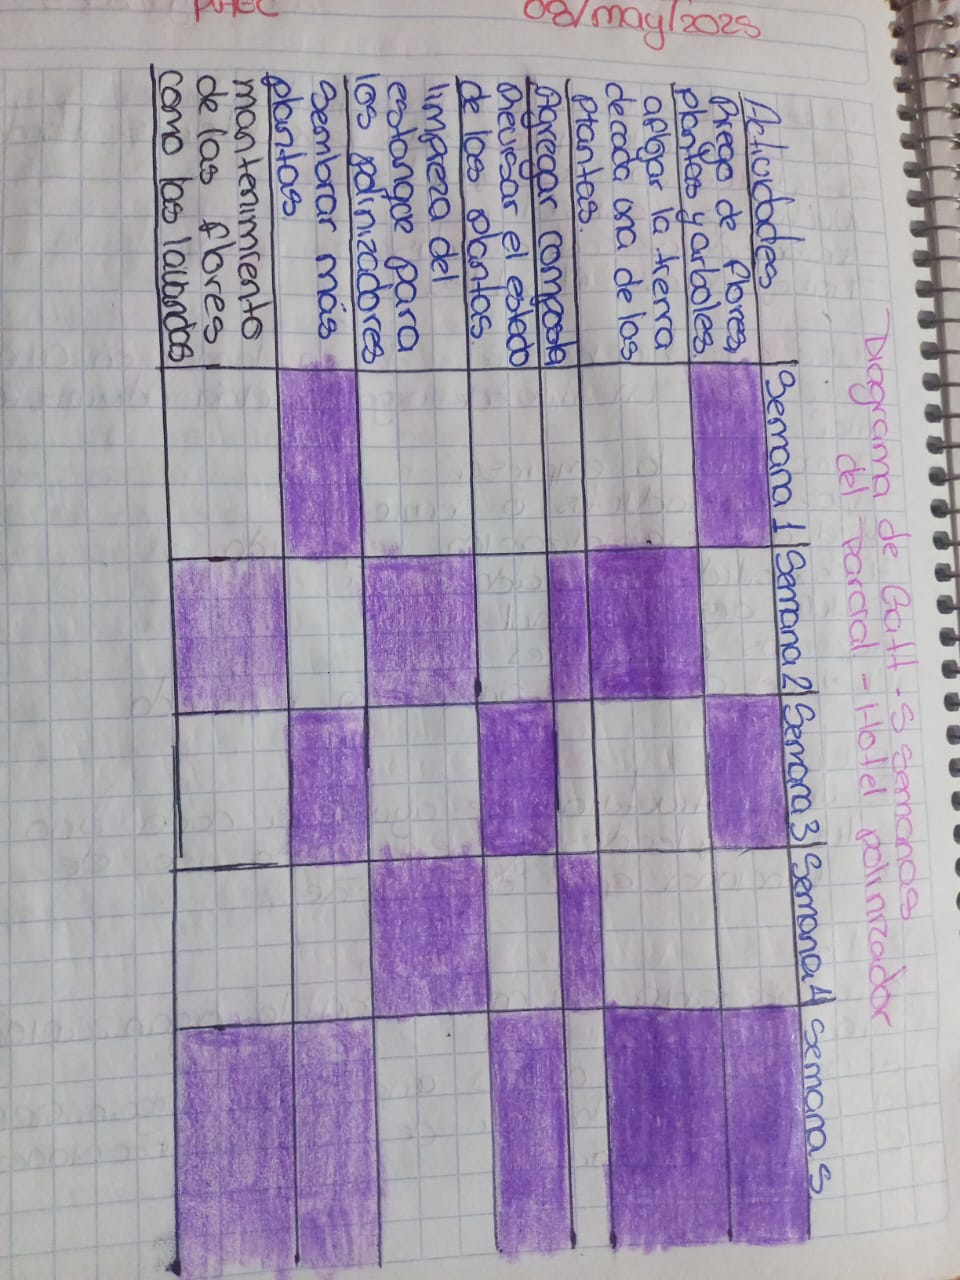 08/may/2025
Diagrama de Gatt - 5 semanas
del parcial - Hotel polinizador
Actividades
Semana 1
Semana 2
Semana 3
Semana 4
Semana 5
Riego de flores,
plantas y arboles.
aflojar la tierra
de cada una de los
plantas.
Agregar composta
Revisar el estado
de las plantas.
limpieza del
estanque para
los polinizadores
Sembrar más
plantas
mantenimiento
de las flores
como las lavandas